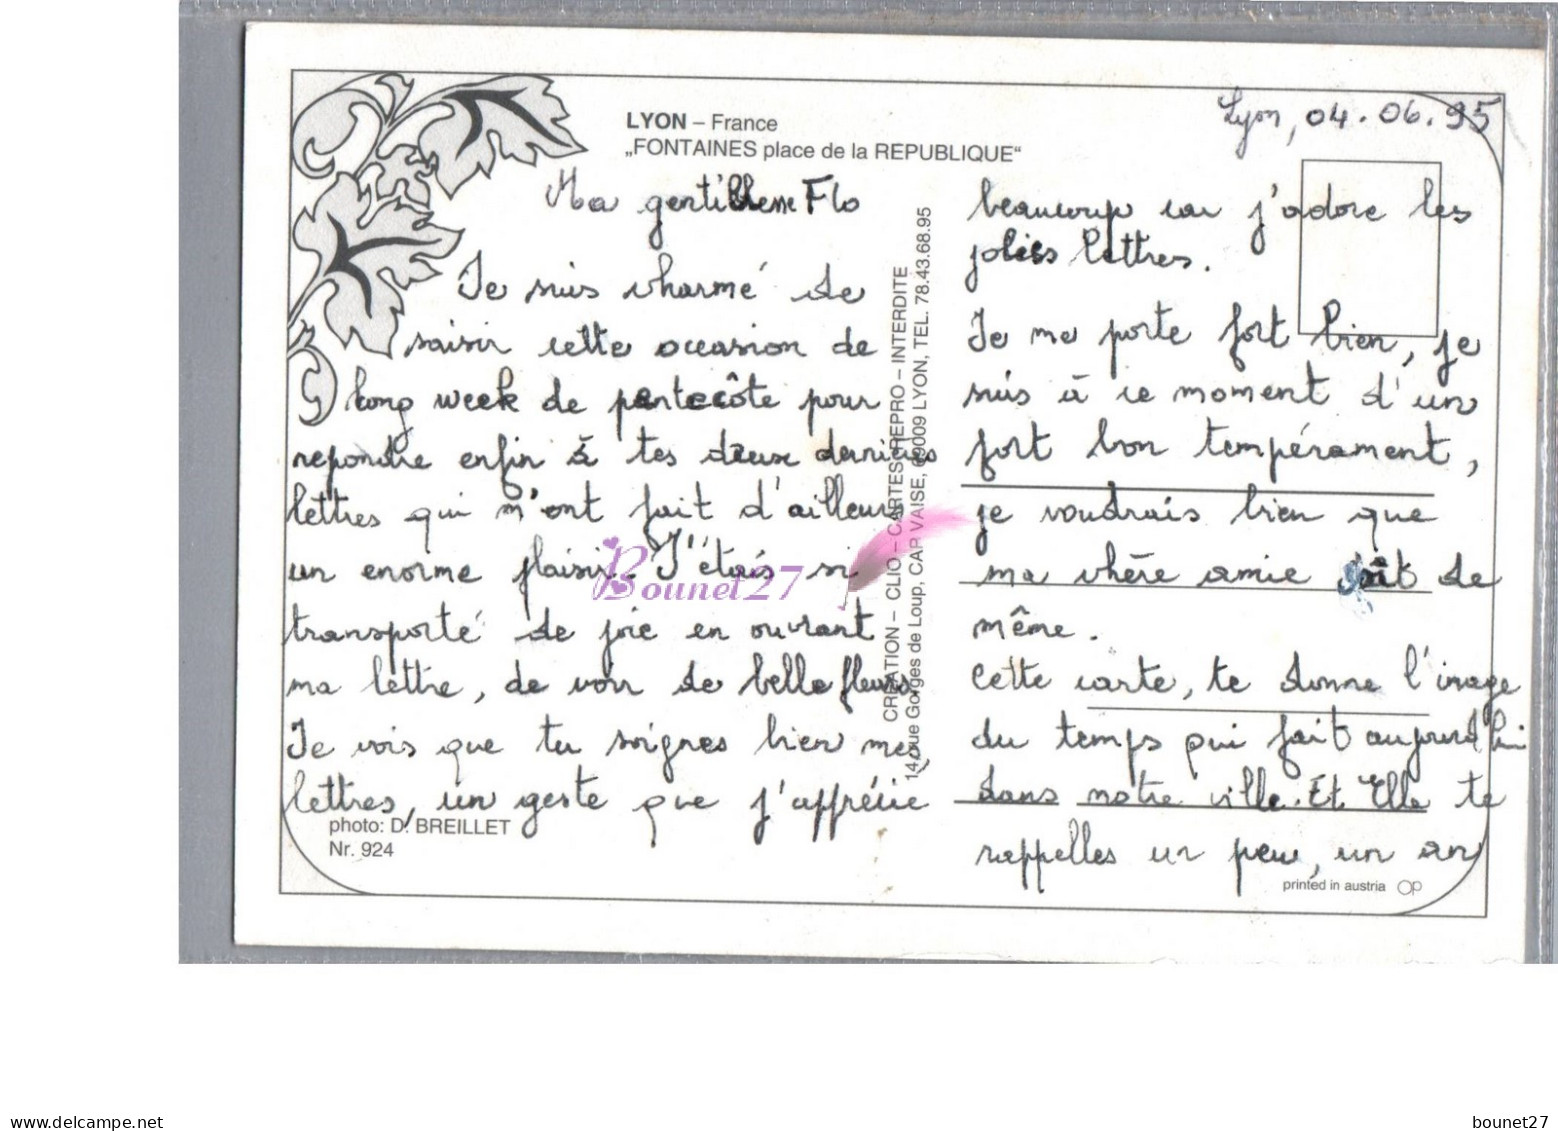 LYON – France
„FONTAINES place de la REPUBLIQUE“
Lyon, 04.06.95
Ma gentillesse Flo
Je suis charmé de
saisir cette occasion de
long week de pentecôte pour
repondre enfin à tes deux dernières
lettres qui m'ont fait d'ailleurs
un enorme plaisir. J'étais si
transporté de joie en ouvrant
ma lettre, de voir de belle fleurs.
Je vois que tu soignes bien mes
lettres, un geste que j'apprécie
photo: D. BREILLET
Nr. 924
CREATION – CLIO – CARTES REPRO – INTERDITE
14, rue Gorges de Loup, CAP VAISE, 69009 LYON, TEL. 78.43.68.95
beaucoup car j'adore les
jolies lettres.
Je me porte fort bien, je
suis à ce moment d'un
fort bon tempérament,
je voudrais bien que
ma chère amie soit de
même.
Cette carte, te donne l'image
du temps qui fait aujourd'hui
dans notre ville. Et Elle te
rappelles un peu, un an
printed in austria OP
Bounet27
delcampe.net
bounet27